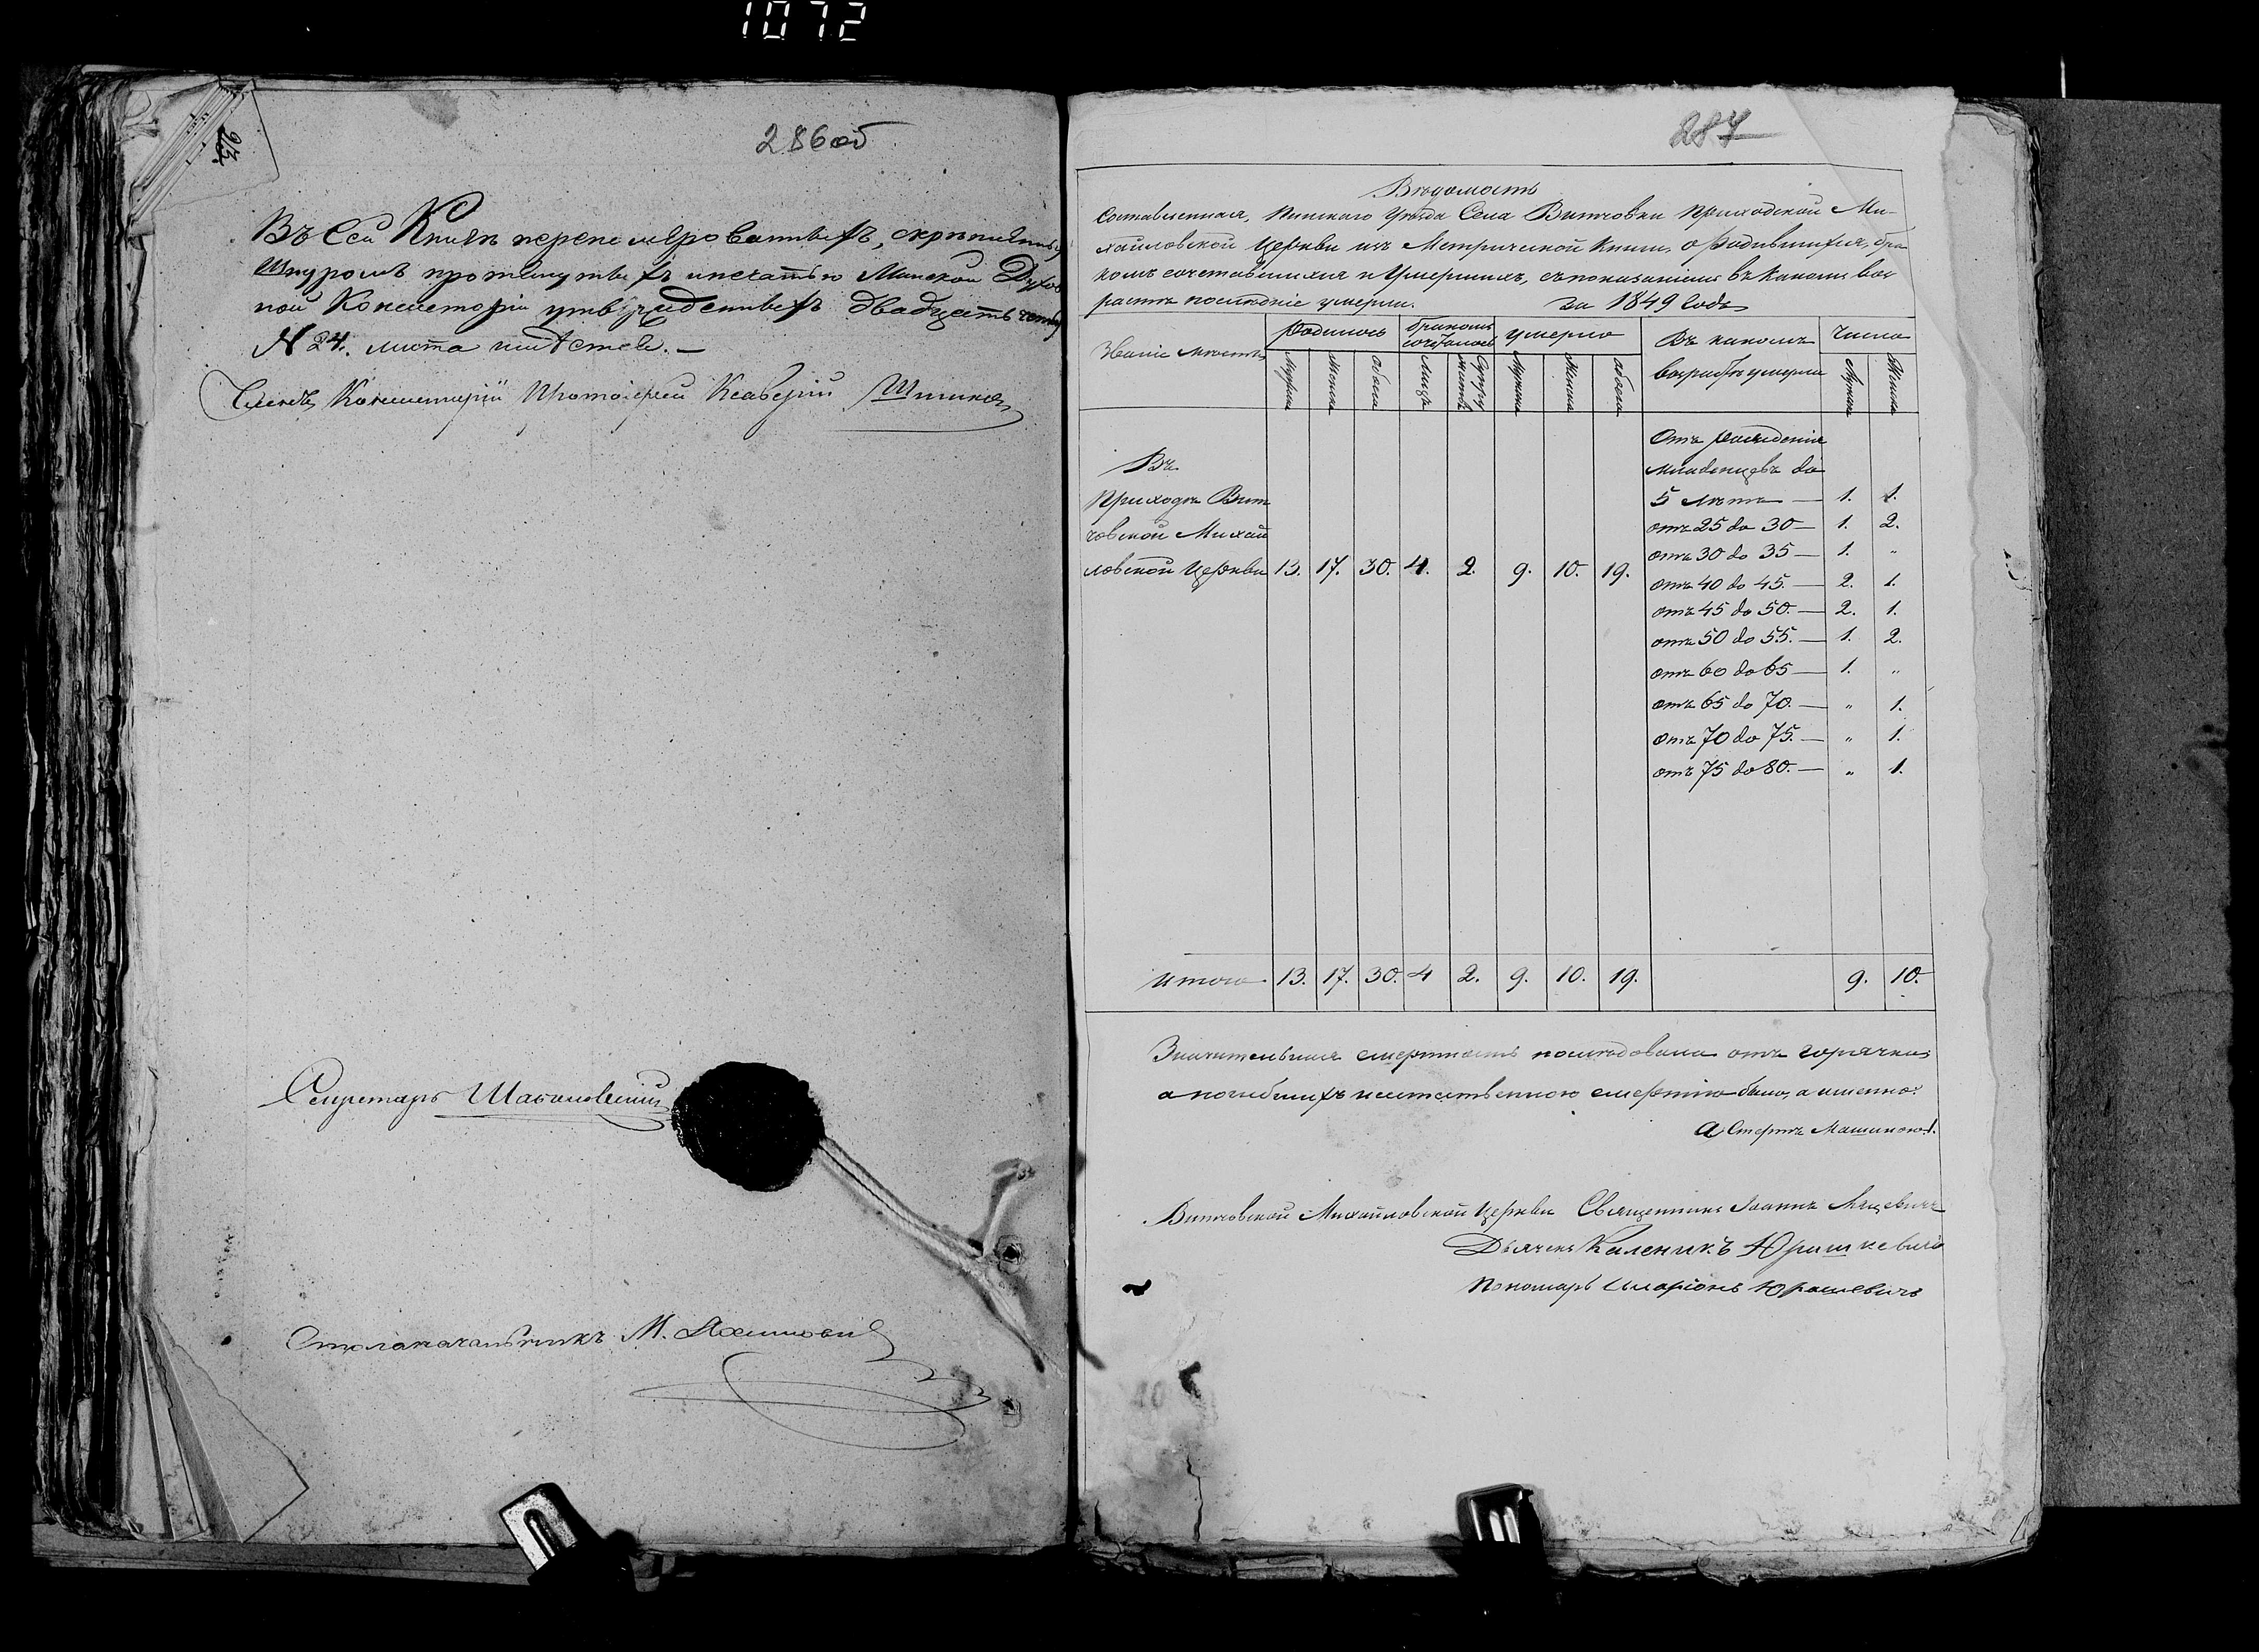 1072
286об
Въ сей Книгѣ перенумерованныхъ, скрѣпленныхъ
Шнуромъ протянутыхъ и печатью Минской Духов
ной Консисторіи утвержденныхъ двадцать четыре
№ 24. листа
Членъ Консисторіи Протоіерей Ксаверій
Секретарь
Столоначальникъ М.
287
Вѣдомость
Составленная, Пинскаго Уѣзда Села Витчовки приходской Ми-
хайловской Церкви изъ Метрической Книги, о родившихся, бра
комъ сочетавшихся и Умершихъ, съ показаніемъ въ какомъ воз
растѣ послѣдніе умерли. за 1849 Годъ
Званіе мѣстъ Родилось бракомъ сочеталось умерло Въ какомъ возрастѣ умерли Число
Мужеска Женска обоего Лицъ Супружествъ Мужеска Женска обоего Мужеска Женска
Отъ рожденія
младенцевъ до
5 лѣтъ — 1. 1.
отъ 25 до 30 — 1. 2.
отъ 30 до 35 — 1. „
отъ 40 до 45. — 2. 1.
отъ 45 до 50. — 2. 1.
отъ 50 до 55. — 1. 2.
отъ 60 до 65 — 1. „
отъ 65 до 70. — „ 1.
отъ 70 до 75. — „ 1.
отъ 75 до 80. — „ 1.
Въ
Приходѣ Вит
човской Михай
ловской Церкви 13. 17. 30. 4. 2. 9. 10. 19.
Итого 13. 17. 30. 4 2. 9. 10. 19. 9. 10.
Значительная смертность послѣдовала отъ горячки,
а погибшихъ неестественною смертію было, а именно:
Машиною 1.
Витчовской Михайловской Церкви Священникъ Іоаннъ Мацевичъ
Дьячекъ Каленикъ Юрашкевичъ
Пономарь Иларіонъ Юрашевичъ